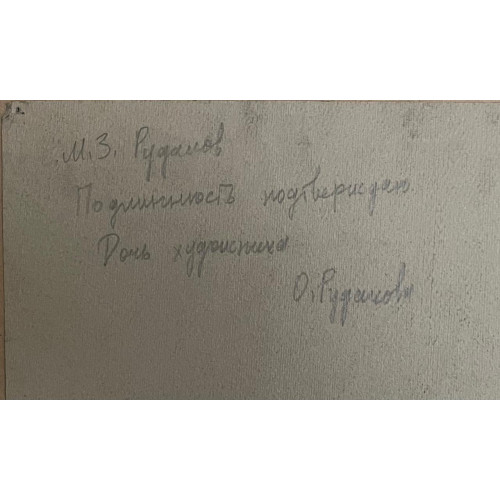 М.З. Рудаков
Подлинность подтверждаю
Дочь художника
О. Рудакова